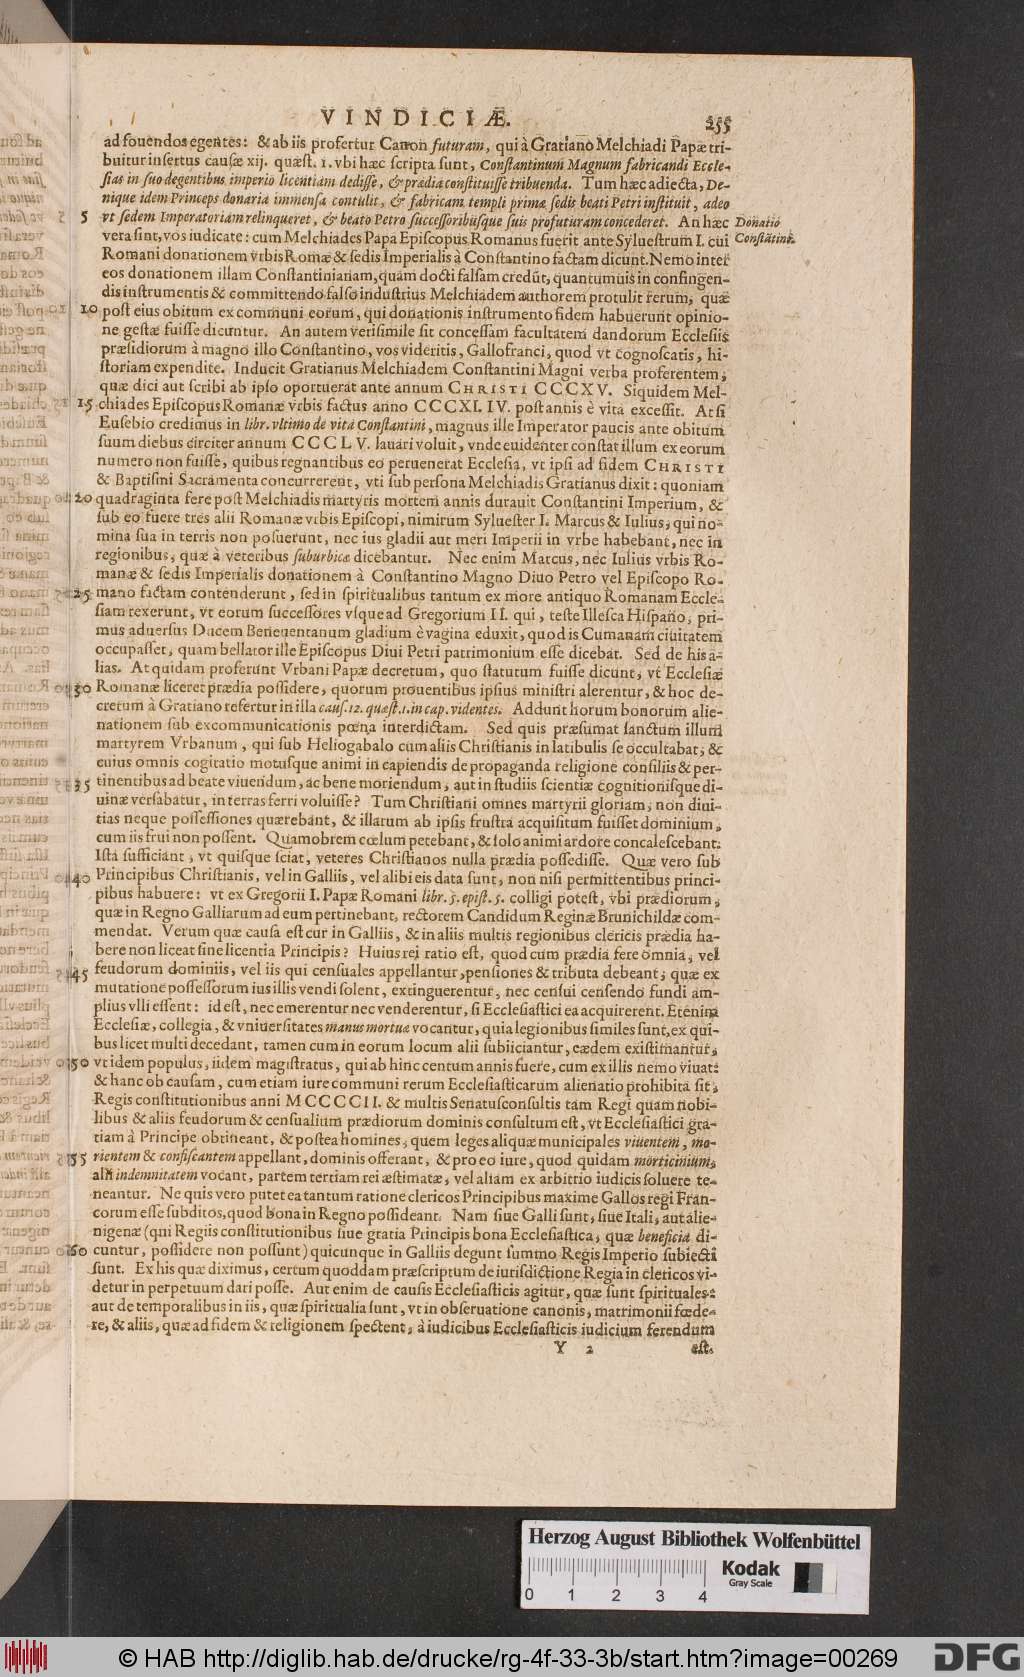 VINDICIÆ. 255
ad fouendos egentes: & ab iis profertur Canon futuram, qui à Gratiano Melchiadi Papæ tri-
buitur insertus causæ xij. quæst. 1. vbi hæc scripta sunt, Constantinum Magnum fabricandi Eccle-
sias in suo degentibus imperio licentiam dedisse, & prædia constituisse tribuenda. Tum hæc adiecta, De-
nique idem Princeps donaria immensa contulit, & fabricam templi primæ sedis beati Petri instituit, adeo
5 vt sedem Imperatoriam relinqueret, & beato Petro successoribúsque suis profuturam concederet. An hæc
Donatio
Constãtini.
vera sint, vos iudicate: cum Melchiades Papa Episcopus Romanus fuerit ante Syluestrum I. cui
Romani donationem vrbis Romæ & sedis Imperialis à Constantino factam dicunt. Nemo inter
eos donationem illam Constantinianam, quam docti falsam credũt, quantumuis in confingen-
dis instrumentis & committendo falso industrius Melchiadem authorem protulit rerum, quæ
10 post eius obitum ex communi eorum, qui donationis instrumento fidem habuerunt opinio-
ne gestæ fuisse dicuntur. An autem verisimile sit concessam facultatem dandorum Ecclesiis
præsidiorum à magno illo Constantino, vos videritis, Gallofranci, quod vt cognoscatis, hi-
storiam expendite. Inducit Gratianus Melchiadem Constantini Magni verba proferentem,
quæ dici aut scribi ab ipso oportuerat ante annum CHRISTI CCCXV. Siquidem Mel-
15 chiades Episcopus Romanæ vrbis factus anno CCCXI. IV. post annis è vita excessit. At si
Eusebio credimus in libr. vltimo de vita Constantini, magnus ille Imperator paucis ante obitum
suum diebus circiter annum CCCLV. lauari voluit, vnde euidenter constat illum ex eorum
numero non fuisse, quibus regnantibus eo peruenerat Ecclesia, vt ipsi ad fidem CHRISTI
& Baptismi Sacramenta concurrerent, vti sub persona Melchiadis Gratianus dixit: quoniam
20 quadraginta fere post Melchiadis martyris mortem annis durauit Constantini Imperium, &
sub eo fuere tres alii Romanæ vrbis Episcopi, nimirum Syluester I. Marcus & Iulius, qui no-
mina sua in terris non posuerunt, nec ius gladii aut meri Imperii in vrbe habebant, nec in
regionibus, quæ à veteribus suburbicæ dicebantur. Nec enim Marcus, nec Iulius vrbis Ro-
manæ & sedis Imperialis donationem à Constantino Magno Diuo Petro vel Episcopo Ro-
25 mano factam contenderunt, sed in spiritualibus tantum ex more antiquo Romanam Eccle-
siam rexerunt, vt eorum successores vsque ad Gregorium II. qui, teste Illesca Hispano, pri-
mus aduersus Ducem Beneuentanum gladium è vagina eduxit, quod is Cumanam ciuitatem
occupasset, quam bellator ille Episcopus Diui Petri patrimonium esse dicebat. Sed de his a-
lias. At quidam proferunt Vrbani Papæ decretum, quo statutum fuisse dicunt, vt Ecclesiæ
30 Romanæ liceret prædia possidere, quorum prouentibus ipsius ministri alerentur, & hoc de-
cretum à Gratiano refertur in illa caus. 12. quæst. 1. in cap. videntes. Addunt horum bonorum alie-
nationem sub excommunicationis pœna interdictam. Sed quis præsumat sanctum illum
martyrem Vrbanum, qui sub Heliogabalo cum aliis Christianis in latibulis se occultabat, &
cuius omnis cogitatio motusque animi in capiendis de propaganda religione consiliis & per-
35 tinentibus ad beate viuendum, ac bene moriendum, aut in studiis scientiæ cognitionisque di-
uinæ versabatur, in terras ferri voluisse? Tum Christiani omnes martyrii gloriam, non diui-
tias neque possessiones quærebant, & illarum ab ipsis frustra acquisitum fuisset dominium,
cum iis frui non possent. Quamobrem cœlum petebant, & solo animi ardore concalescebant.
Ista sufficiant, vt quisque sciat, veteres Christianos nulla prædia possedisse. Quæ vero sub
40 Principibus Christianis, vel in Galliis, vel alibi eis data sunt, non nisi permittentibus princi-
pibus habuere: vt ex Gregorii I. Papæ Romani libr. 5. epist. 5. colligi potest, vbi prædiorum,
quæ in Regno Galliarum ad eum pertinebant, rectorem Candidum Reginæ Brunichildæ com-
mendat. Verum quæ causa est cur in Galliis, & in aliis multis regionibus clericis prædia ha-
bere non liceat sine licentia Principis? Huius rei ratio est, quod cum prædia fere omnia, vel
45 feudorum dominiis, vel iis qui censuales appellantur, pensiones & tributa debeant, quæ ex
mutatione possessorum ius illis vendi solent, extinguerentur, nec censui censendo fundi am-
plius vlli essent: id est, nec emerentur nec venderentur, si Ecclesiastici ea acquirerent. Etenim
Ecclesiæ, collegia, & vniuersitates manus mortuæ vocantur, quia legionibus similes sunt, ex qui-
bus licet multi decedant, tamen cum in eorum locum alii subiiciantur, eædem existimantur,
50 vt idem populus, iidem magistratus, qui ab hinc centum annis fuere, cum ex illis nemo viuat:
& hanc ob causam, cum etiam iure communi rerum Ecclesiasticarum alienatio prohibita sit,
Regis constitutionibus anni MCCCCII. & multis Senatusconsultis tam Regi quam nobi-
libus & aliis feudorum & censualium prædiorum dominis consultum est, vt Ecclesiastici gra-
tiam à Principe obtineant, & postea homines, quem leges aliquæ municipales viuentem, mo-
55 rientem & confiscantem appellant, dominis offerant, & pro eo iure, quod quidam morticinium,
alii indemnitatem vocant, partem tertiam rei æstimatæ, vel aliam ex arbitrio iudicis soluere te-
neantur. Ne quis vero putet ea tantum ratione clericos Principibus maxime Gallos regi Fran-
corum esse subditos, quod bona in Regno possideant. Nam siue Galli sunt, siue Itali, aut alie-
nigenæ (qui Regiis constitutionibus siue gratia Principis bona Ecclesiastica, quæ beneficia di-
60 cuntur, possidere non possunt) quicunque in Galliis degunt summo Regis Imperio subiecti
sunt. Ex his quæ diximus, certum quoddam præscriptum de iurisdictione Regia in clericos vi-
detur in perpetuum dari posse. Aut enim de causis Ecclesiasticis agitur, quæ sunt spirituales:
aut de temporalibus in iis, quæ spiritualia sunt, vt in obseruatione canonis, matrimonii fœde-
re, & aliis, quæ ad fidem & religionem spectent, à iudicibus Ecclesiasticis iudicium ferendum
Y 2 est.
Herzog August Bibliothek Wolfenbüttel
Kodak
Gray Scale
0 1 2 3 4
© HAB http://diglib.hab.de/drucke/rg-4f-33-3b/start.htm?image=00269
DFG